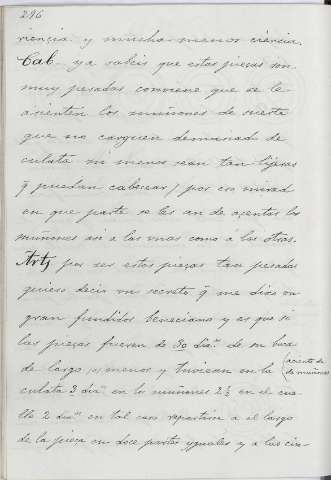 296
riencia y mucha menos ciencia.
Cab. ya sabeis que estas piezas son
muy pesadas conviene que se le
asienten los muñones de suerte
que no carguen demasiad de
culata ni menos sean tan lijeras
q puedan cabecear / por eso mirad
en que parte se les an de açentar los
muñones asi a las unas como á las otras.
Art. por ser estas pieças tan pesadas
quiero decir un secreto q me dixo un
gran fundidor Veneciano y es que si
las pieças fuesen de 30 dia.s de su boca
de largo, o menos y tuviesen en la
asiento de
de muñones
culata 3 dia.s en los muñones 2½ en el cue-
llo 2 dia.s en tal caso repartirás el largo
de la pieça en doce partes yguales y a las cin-